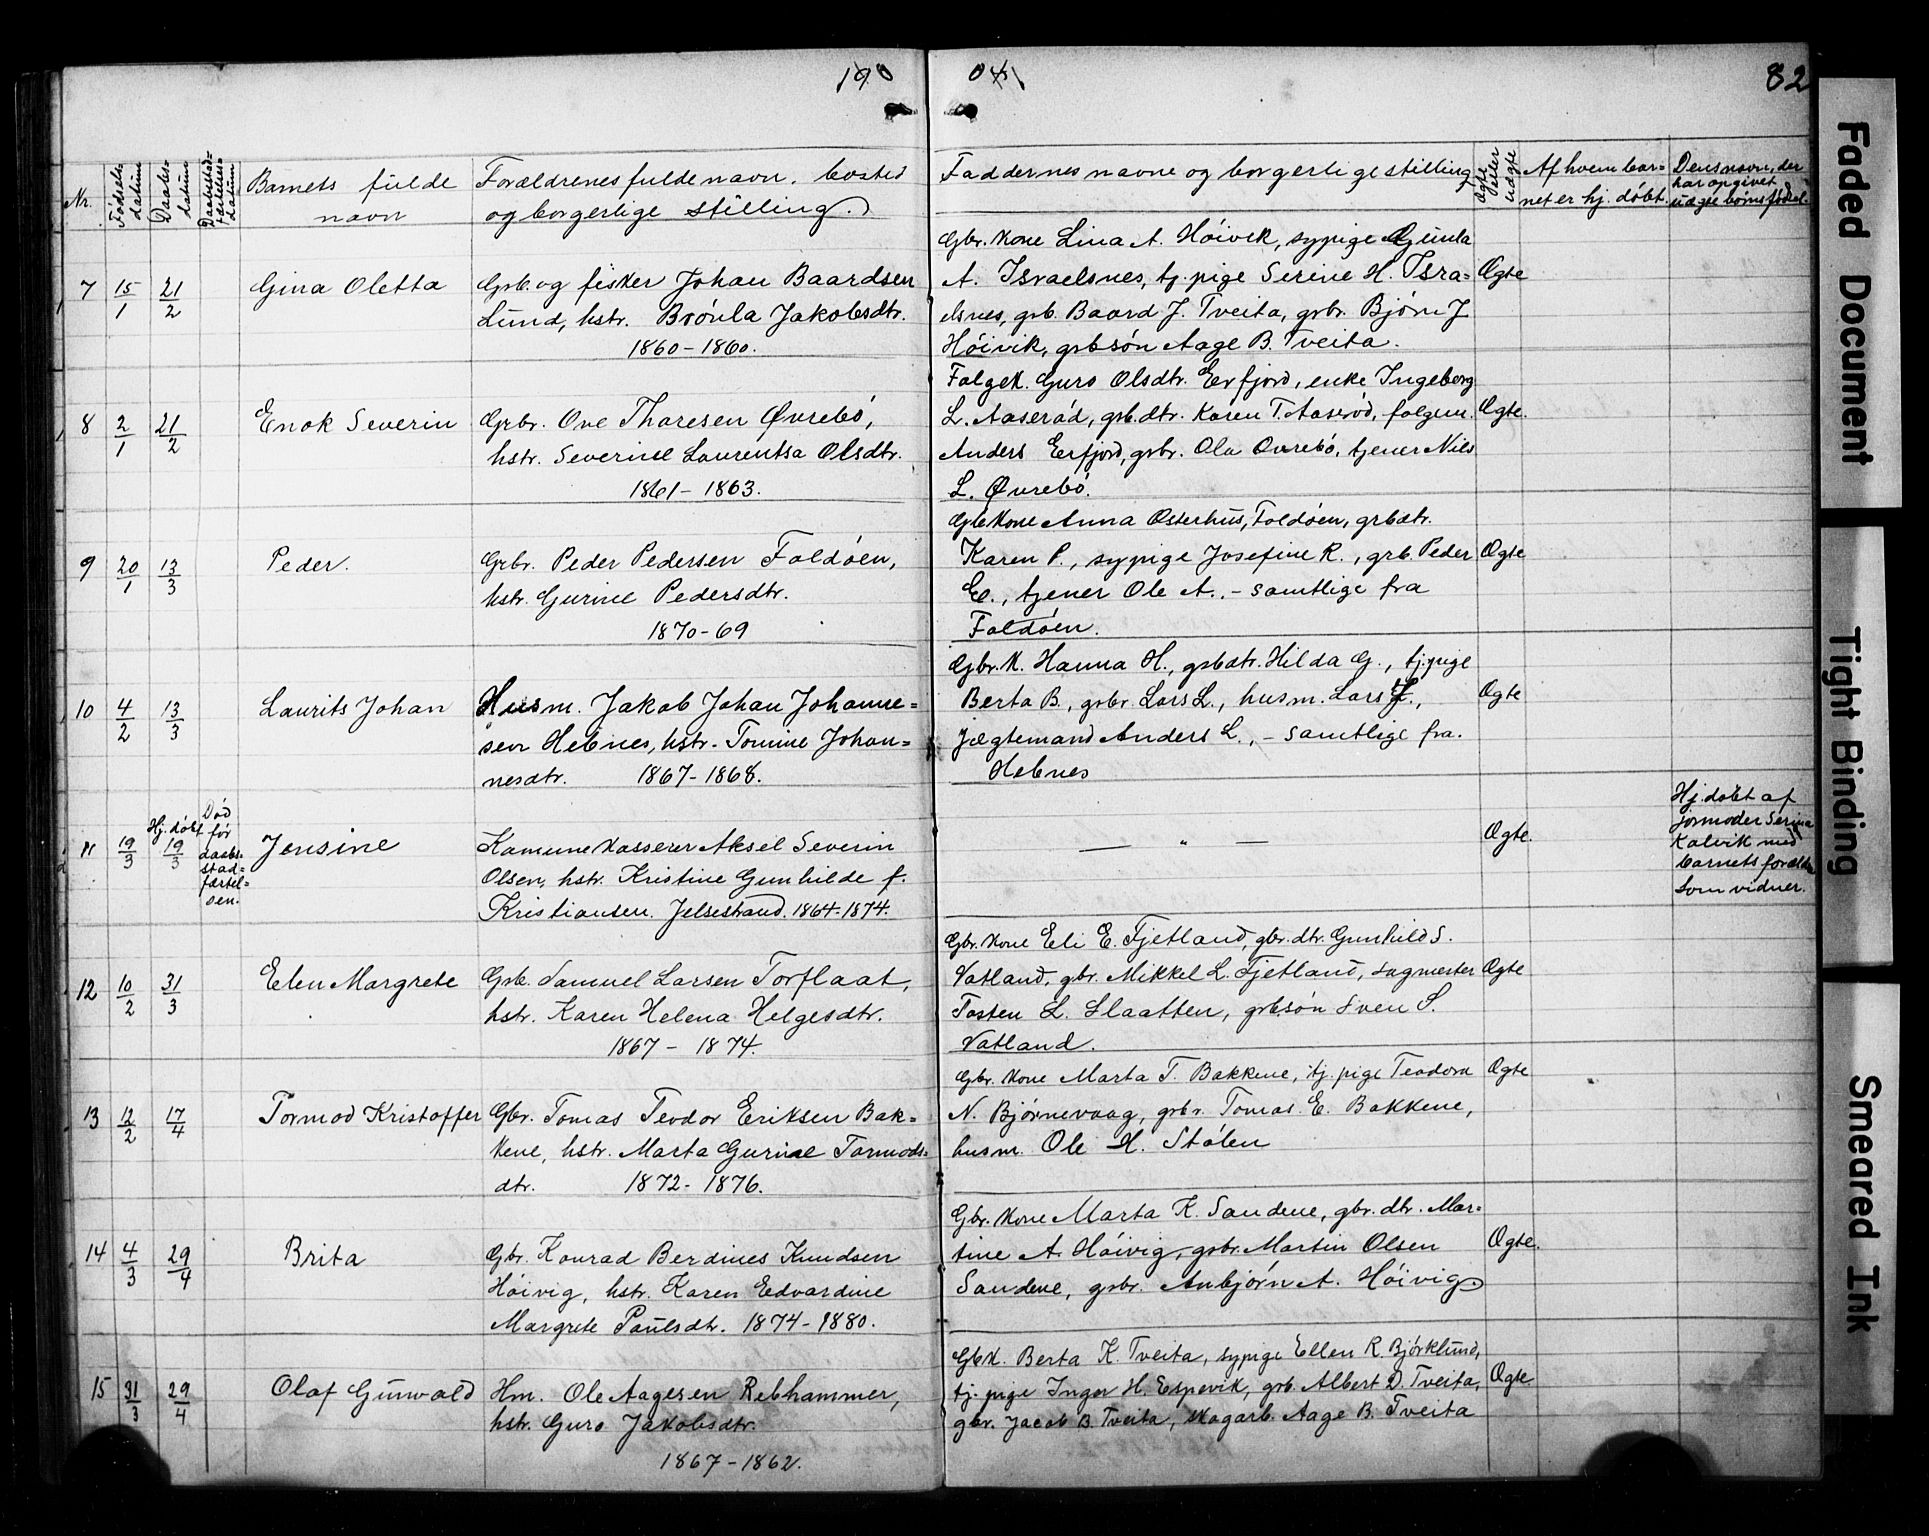 190
04
82
Nr.
Fødsels-
datum
Daabs-
datum
Barnets fulde
navn
Forældrenes fulde navn, bosted
og borgerlige stilling.
Faddernes navne og borgerlige stilling
Ægte
eller
uægte
Af hvem bar-
net er hj. døbt.
Dens navn, der
har opgivet
uægte børns fødsel.
7 15/1 21/2 Gina Oletta
Grb. og fisker Johan Baardsen
Lund, hstr. Brónla Jakobsdtr.
1860-1860.
Gbr. kone Lina A. Hóivik, sypige Gunla
A. Israelsnes, tj. pige Serine H. Isra=
elsnes, grb. Baard J. Tveita, grbr. Bjórn J
Hóivik, grbsón Aage B. Tveita.
Ægte
8 2/1 21/2 Enok Severin
Grbr. Ove Tharesen Øvrebó,
hstr. Severine Laurentsa Olsdtr.
1861-1863.
Folgek. Guro Olsdtr. Erfjord, enke Ingeborg
L. Aaseród, grb.dtr. Karen T. Aaseród, folgem.
Anders Erfjord, grbr. Ola Øvrebó, tjener Nils
L. Øvrebó.
Ægte.
9 20/1 13/3 Peder.
Grbr. Peder Pedersen Foldóen,
hstr. Gurine Pedersdtr.
1870-69
Gbkone Anna Osterhus, Foldóen, grbdtr.
Karen P., sypige Josefine R., grb. Peder
E., tjener Ole A., - samtlige fra
Foldóen.
Ægte
10 4/2 13/3 Laurits Johan
Husm. Jakob Johan Johanne=
sen Hebnes, hstr. Tomine Johan=
nesdtr. 1867-1868.
Gbr. k. Hanna H., grbdtr. Hilda G., tj.pige
Berta B., grbr. Lars L., husm. Lars J.,
jægtemand Anders L., - samtlige fra.
Hebnes
Ægte
11 19/3 Hj. døbt 19/3
Død
før
daabs-
stad-
fæstel-
sen.
Jensine
Kamunekasserer Aksel Severin
Olsen, hstr. Kristine Gunhilde f.
Kristiansen. Jelsestrand. 1864-1874.
— " —
Ægte.
Hj. døbt af
jormoder Serina
Kalvik med
barnets forældre
som vidner.
12 10/2 31/3 Elen Margrete
Grb. Samuel Larsen Torflaat,
hstr. Karen Helena Helgesdtr.
1867 - 1874.
Gbr. kone Eli E. Fjetland, gbr. dtr. Gunhild S.
Vatland, gbr. Mikkel L. Fjetland, sagmester
Tosten L. Slaatten, grb.són Sven S.
Vatland.
Ægte
13 12/2 17/4 Tormod Kristoffer
Gbr. Tomas Teodor Eriksen Bak=
kene, hstr. Marta Gurine Tormods=
dtr. 1872-1876.
Gbr. kone Marta T. Bakkene, tj. pige Teodora
N. Bjórnevaag, grbr. Tomas E. Bakkene,
husm. Ole H. Stólen
Ægte
14 4/3 29/4 Brita
Gbr. Konrad Berdines Knudsen
Hóivig, hstr. Karen Edvardine
Margrete Paulsdtr. 1874-1880.
Gbr. kone Marta K. Sandene, gbr. dtr. Mar=
tine A. Hóivig, grbr. Martin Olsen
Sandene, grbr. Anbjórn A. Hóivig.
Ægte.
15 31/3 29/4 Olaf Gunvald
Hm. Ole Aagesen Rebhammer,
hstr. Guro Jakobsdtr.
1867-1862.
Gbk. Berta K. Tveita, sypige Ellen R. Bjórklund,
tj. pige Inger H. Espevik, grb. Albert D. Tveita,
gbr. Jacob B. Tveita, skogarb. Aage B. Tveita
Ægte.
Faded Document
Tight Binding
Smeared Ink